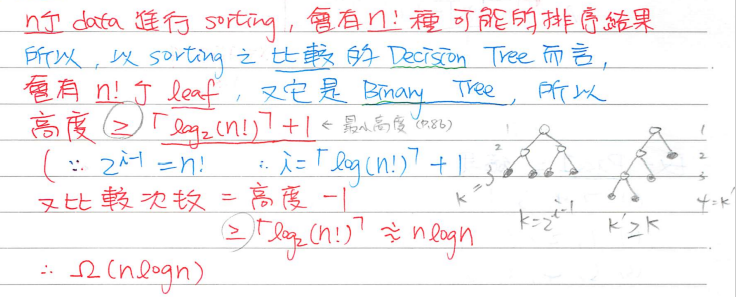 n个 data 進行 sorting, 會有 n! 種 可能的排序結果
所以, 以 sorting 之 比較 的 Decision Tree 而言,
會有 n! 个 leaf , 又它是 Binary Tree, 所以
高度 ≥ ⌈log₂(n!)⌉ + 1 ← 最小高度 (P.86)
( ∵ 2^{i-1} = n! ∴ i = ⌈log(n!)⌉ + 1
又比較次數 = 高度 - 1
≥ ⌈log₂(n!)⌉ ≈ nlogn
∴ Ω(nlogn)
1
2
k = 3
k = 2^{i-1}
1
2
3
4 = k'
k' ≥ k